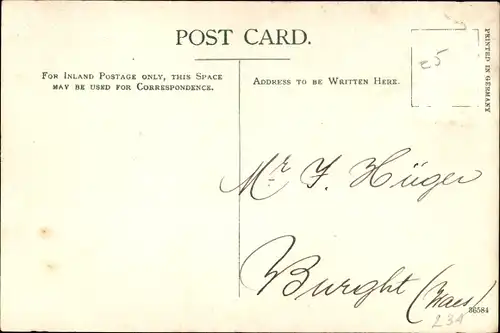 POST CARD.
FOR INLAND POSTAGE ONLY, THIS SPACE
MAY BE USED FOR CORRESPONDENCE.
ADDRESS TO BE WRITTEN HERE.
PRINTED IN GERMANY
25
Mr F. Hüger
Burght (Waes)
36584
234